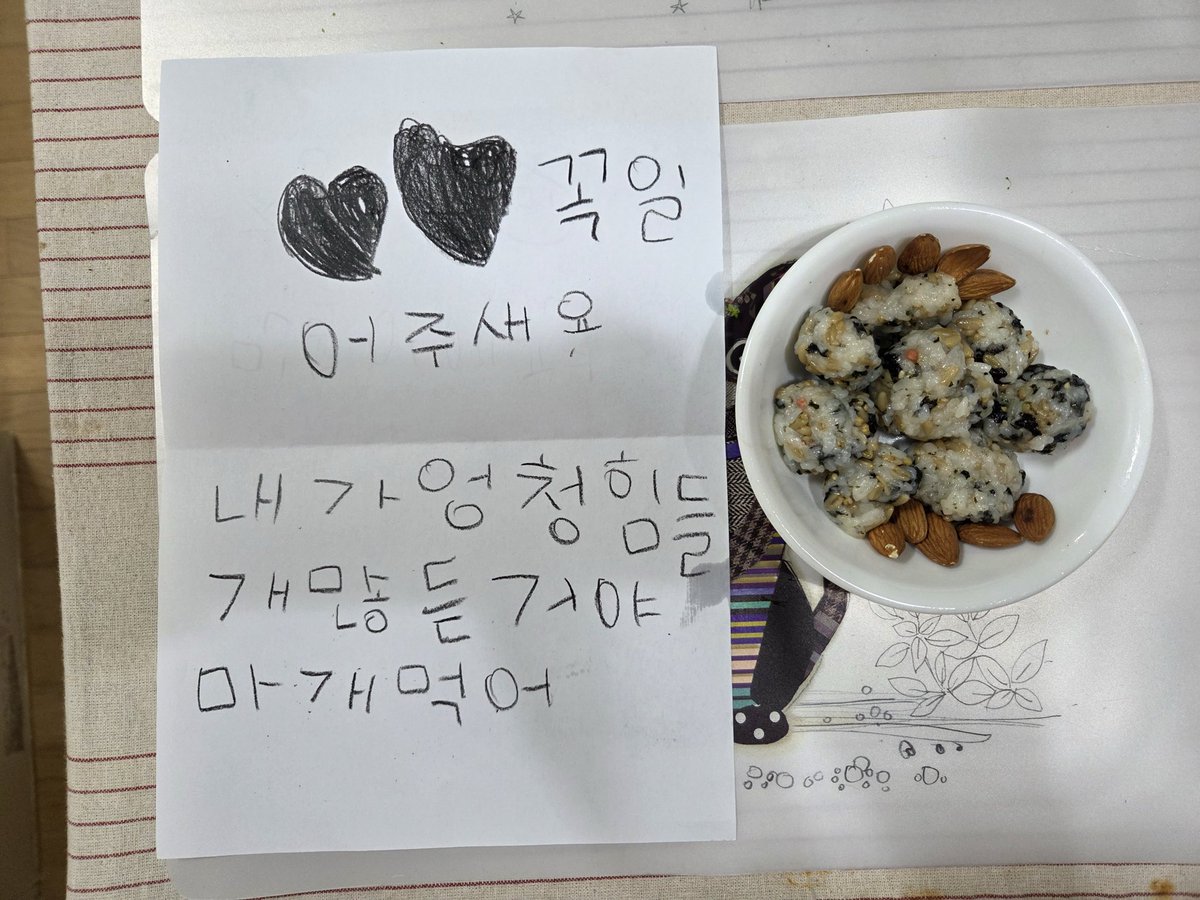 꼭일
어주새요
내가엉청힘들
개만등거야
마개먹어